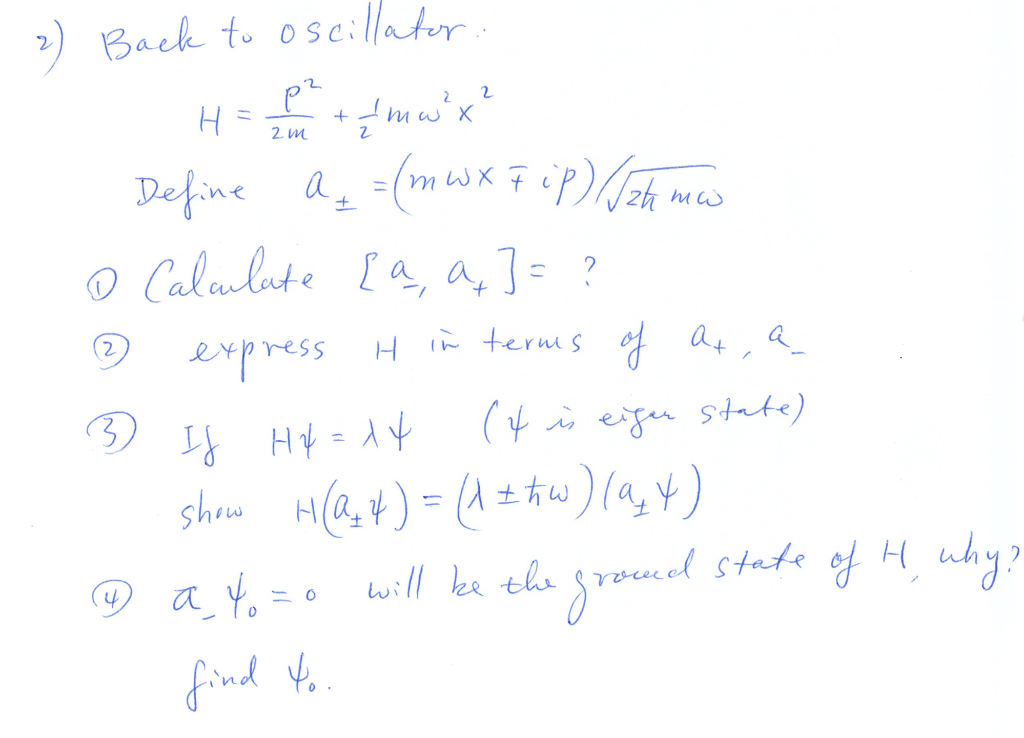 2) Back to oscillator.
H = p²/2m + ½ mω²x²
Define a± = (mωx ∓ ip)/√2ħmω
① Calculate [a₋, a₊] = ?
② express H in terms of a₊, a₋
③ If Hψ = λψ (ψ is eigen state)
show H(a±ψ) = (λ ± ħω)(a±ψ)
④ a₋ψ₀ = 0 will be the ground state of H, why?
find ψ₀.